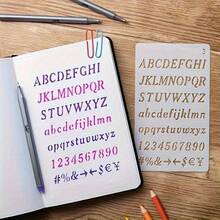 ABCDEFGHI
JKLMNOPQR
STUVWXYZ
abcdefghijklm
nopqrstuvwxyz
1234567890
#%&→←$€¥
ABCDEFGHI
JKLMNOPQR
STUVWXYZ
abcdefghijklm
nopqrstuvwxyz
1234567890
#%&→←$€¥